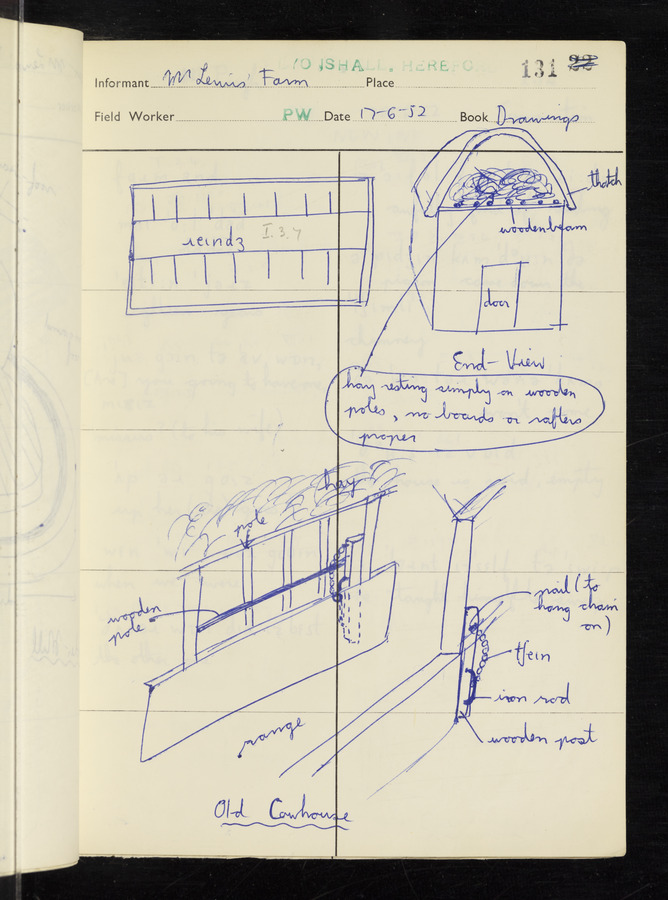 131 22
Informant Mr Lewis' Farm Place
Field Worker PW Date 17-6-52 Book Drawings
thatch
wooden beam
I.3.7
door
End-View
hay resting simply on wooden
poles, no boards or rafters
proper
hay
pole
wooden
pole
nail (to
hang chain
on)
iron rod
wooden post
range
Old Cowhouse